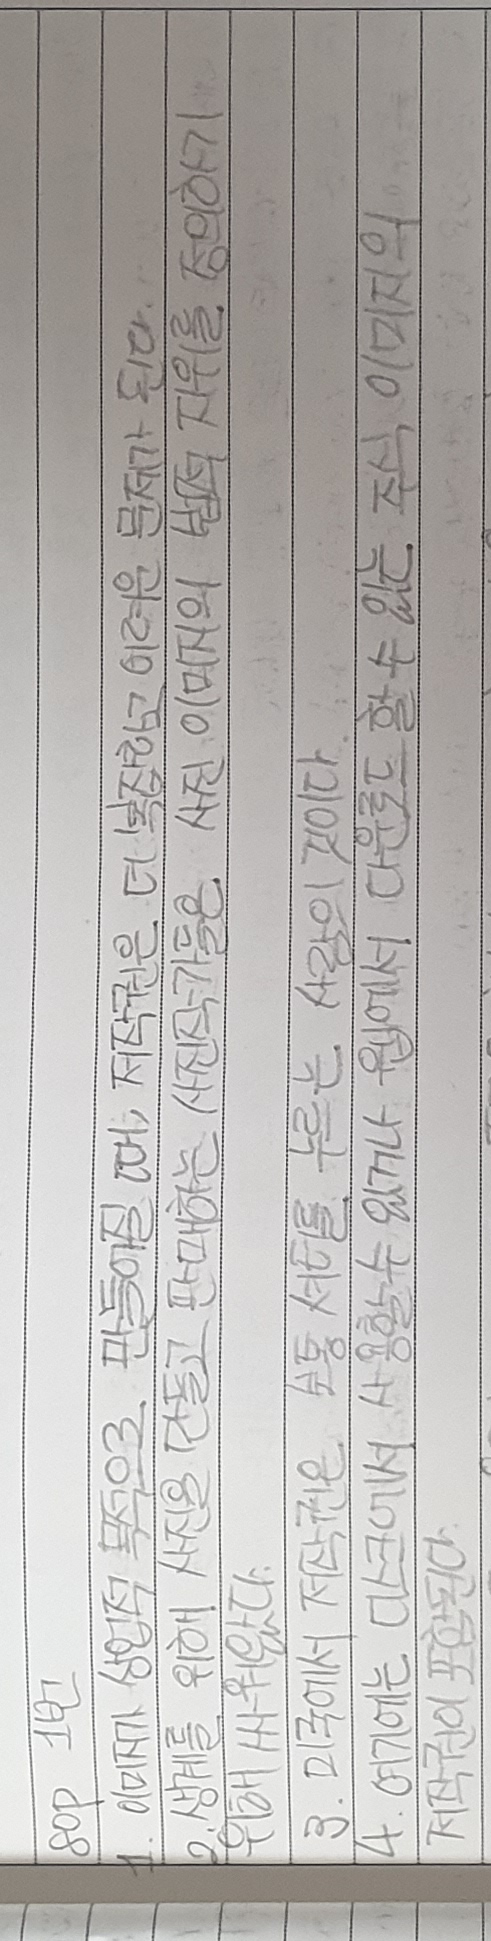 80p 1번
1. 이미지가 상업적 목적으로 만들어질 때, 저작권은 더 복잡하고 어려운 문제가 된다.
2. 생계를 위해 사진을 만들고 판매하는 사진작가들은 사진 이미지의 법적 지위를 정의하기
위해 싸워왔다.
3. 미국에서 저작권은 보통 셔터를 누르는 사람의 것이다.
4. 여기에는 디스크에서 사용할 수 있거나 웹에서 다운로드 할 수 있는 주식 이미지의
저작권이 포함된다.